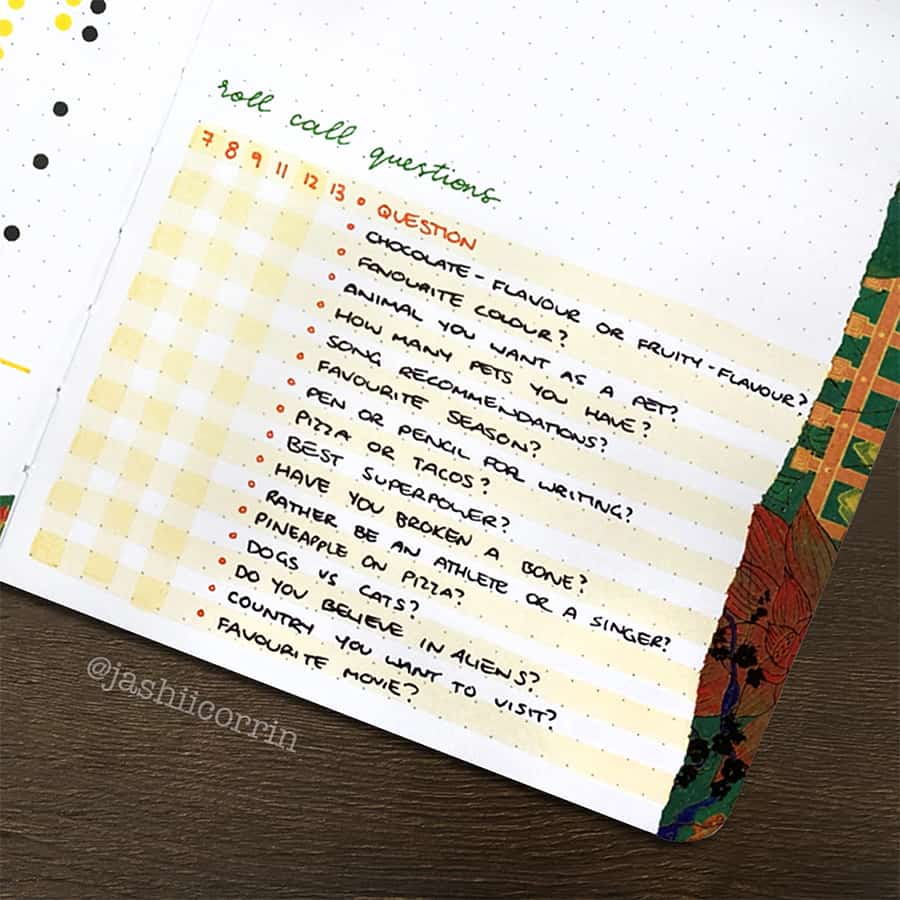 roll call questions
7 8 9 11 12 13 QUESTION
CHOCOLATE-FLAVOUR OR FRUITY-FLAVOUR?
FAVOURITE COLOUR?
ANIMAL YOU WANT AS A PET?
HOW MANY PETS YOU HAVE?
SONG RECOMMENDATIONS?
FAVOURITE SEASON?
PEN OR PENCIL FOR WRITING?
PIZZA OR TACOS?
BEST SUPERPOWER?
HAVE YOU BROKEN A BONE?
RATHER BE AN ATHLETE OR A SINGER?
PINEAPPLE ON PIZZA?
DOGS VS CATS?
DO YOU BELIEVE IN ALIENS?
COUNTRY YOU WANT TO VISIT?
FAVOURITE MOVIE?
@jashiicorrin